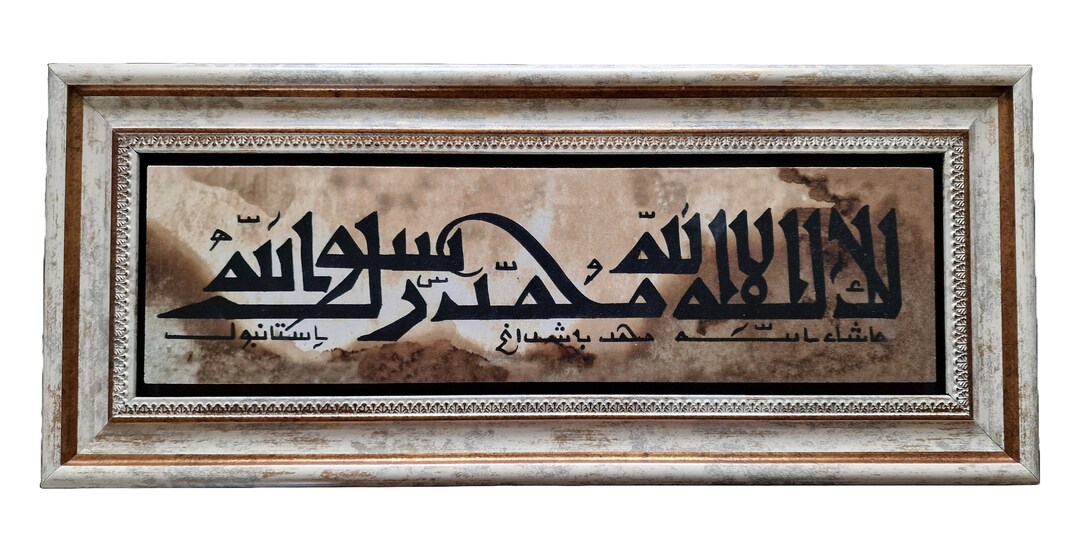 لا إله إلا الله محمد رسول الله
ماشاء الله محمد إستانبول